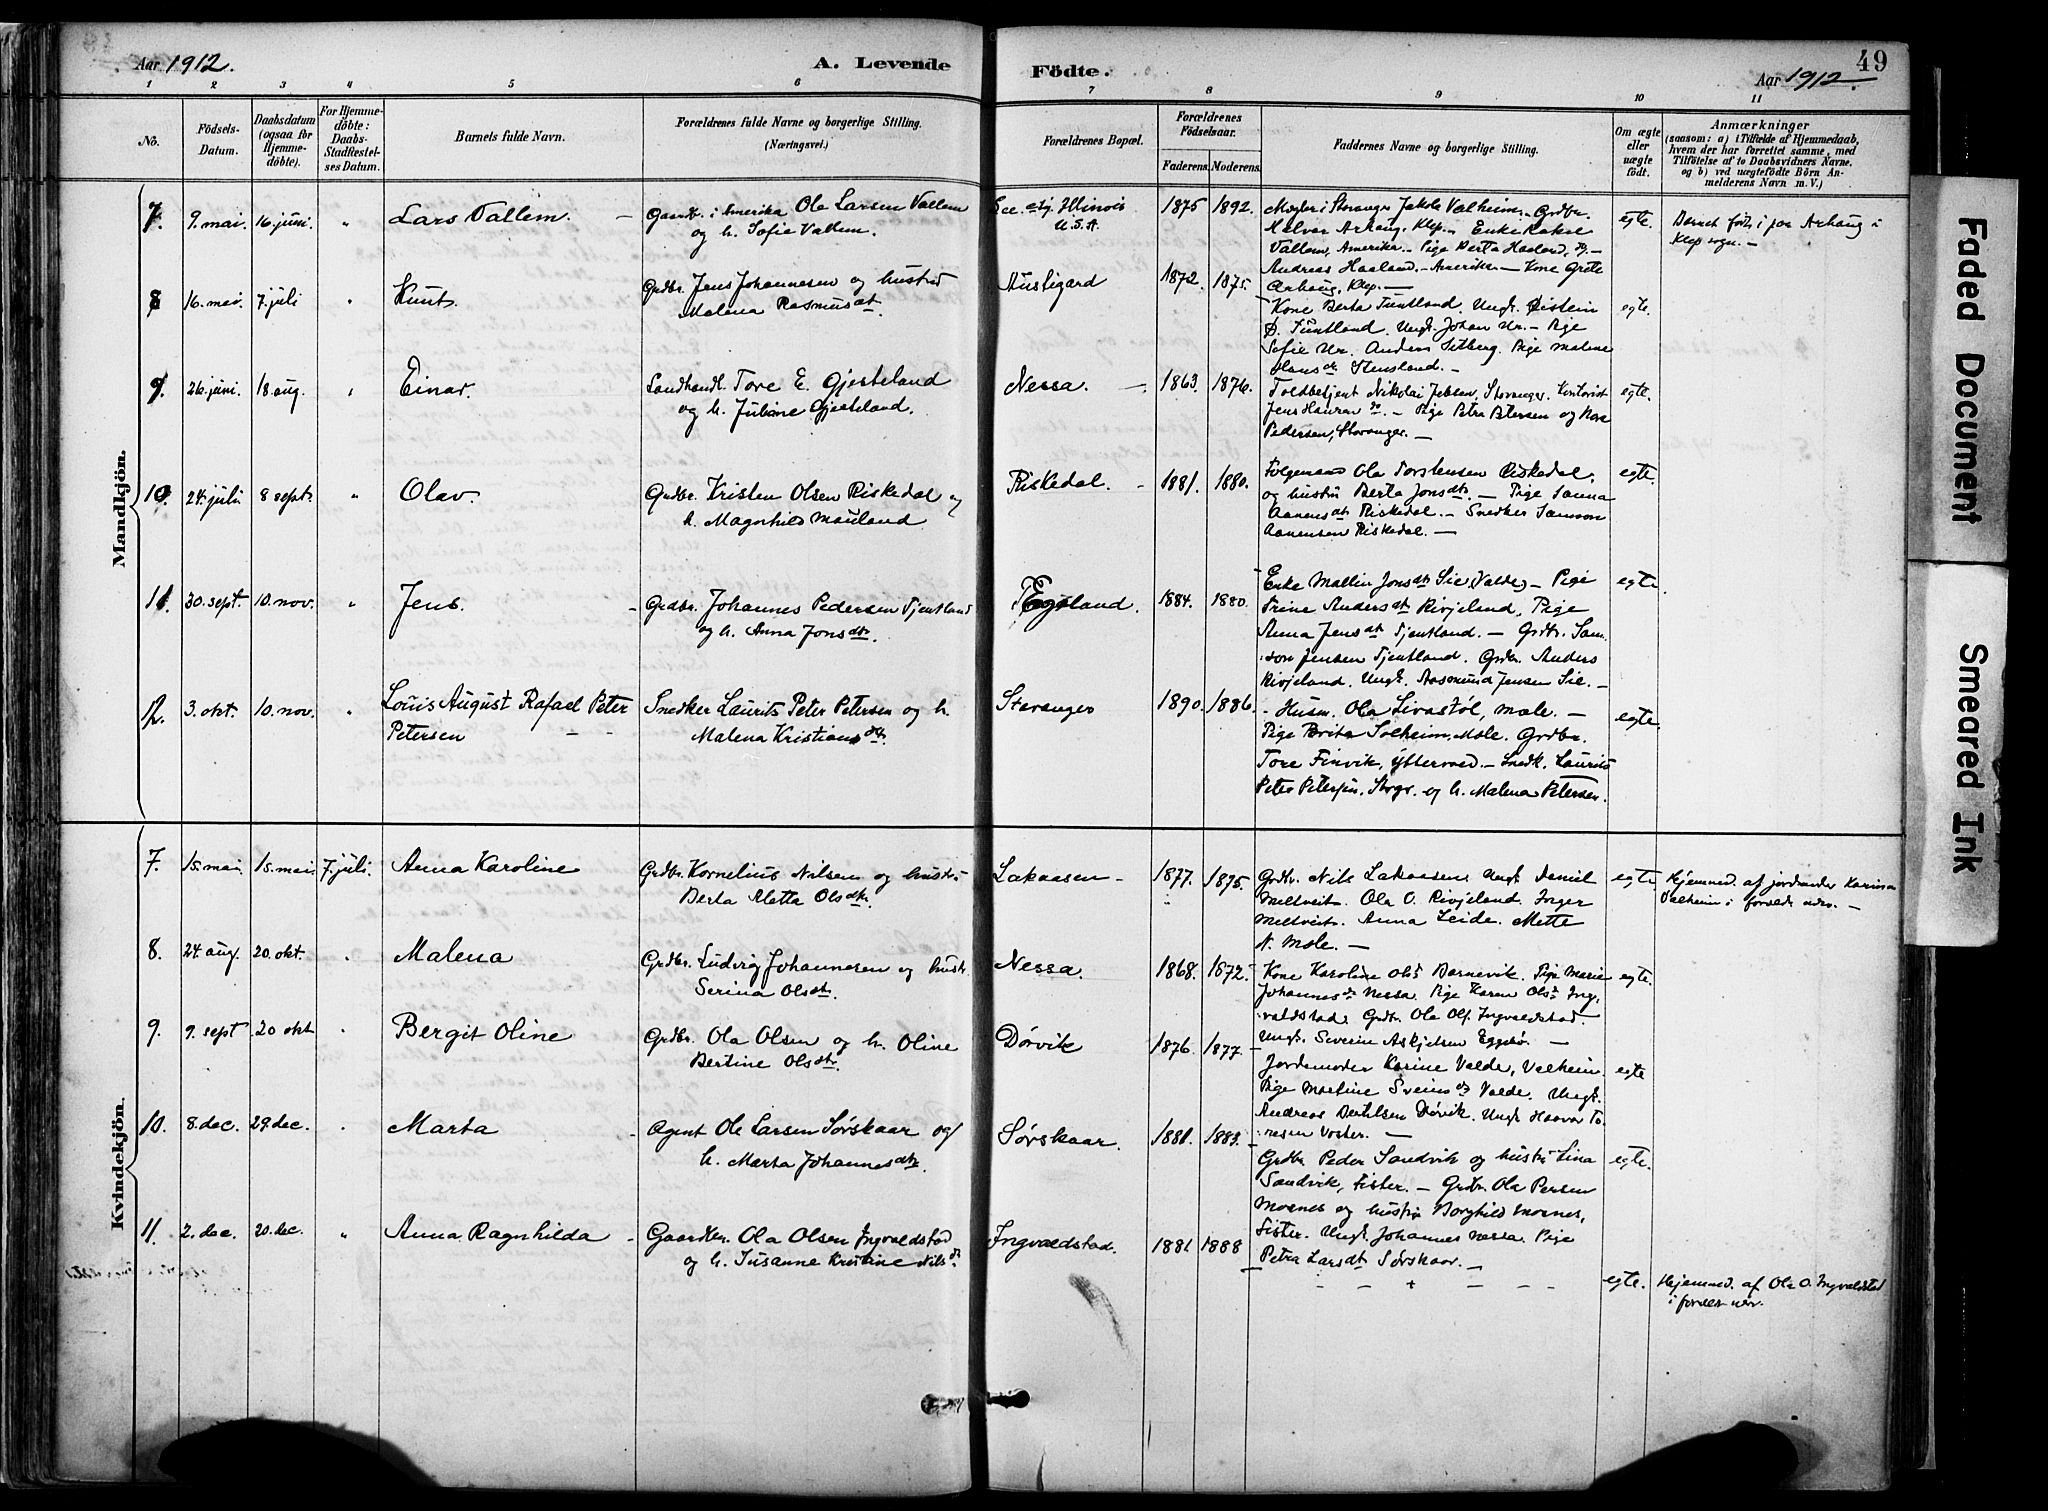 Aar 1912.
A. Levende
Födte.
Aar 1912.
49
1 2 3 4 5 6 7 8 9 10 11
No.
Födsels-
Datum.
Daabsdatum
(ogsaa for
Hjemme-
döbte).
For Hjemme-
döbte:
Daabs-
Stadfæstel-
ses Datum.
Barnets fulde Navn.
Forældrenes fulde Navne og borgerlige Stilling.
(Næringsvei.)
Forældrenes Bopæl.
Forældrenes
Födselsaar.
Faderens. Moderens.
Faddernes Navne og borgerlige Stilling.
Om ægte
eller
uægte
født.
Anmærkninger
(saasom: a) i Tilfælde af Hjemmedaab,
hvem der har forrettet samme, med
Tilföielse af to Daabsvidners Navne,
og b) ved uægtefödte Börn An-
melderens Navn m. V.)
Mandkjön.
7. 9. mai. 16. juni. " Lars Vallem. Gaardbr. i Amerika Ole Larsen Vallem
og h. Sofie Vallem.
Illinois
U.S.A.
1875 1892.
Mægler i Stavanger Jakob Valheim. Grdbr.
Halvor Arhaug, Klep. Enke Rakel
Vallem, Amerika. Pige Berta Haaland,
Andreas Haaland. Amerika. Kone Grete
Arhaug, Klep.
egte.
Barnet født i paa Arhaug i
Klep sogn.
8 16. mai. 7. juli " Knut. Grdbr. Jens Johannesen og hustru
Malena Rasmusdt.
Austigard
1872. 1875.
Kone Berta Tuntland. Ungk. Øistein
Ø. Tuntland. Ungk. Johan Ur. Pige
Sofie Ur. Anders Selberg. Pige Malene
Hansdt. Stensland.
egte.
9. 26. juni. 18. aug. " Einar. Landhandl. Tore E. Gjesteland
og h. Juliane Gjesteland.
Nessa.
1863. 1876.
Toldbetjent Nikolai Jebsen, Stavanger. Kontorist
Jens Hauran do. Pige Petra Petersen og Nora
Pedersen, Stavanger.
egte.
10. 24. juli 8 sept. " Olav. Grdbr. Kristen Olsen Riskedal og
h. Magnhild Mauland
Riskedal.
1881. 1880.
Følgemand Ola Torstensen Riskedal.
og hustru Berta Jonsdtr. Pige Sanna
Aanensdt Riskedal. Snedker Samson
Aanensen Riskedal.
egte.
11. 30. sept. 10. nov. " Jens. Grdbr. Johannes Pedersen Tjentland
og h. Anna Jonsdtr.
Egeland.
1884. 1880.
Enke Mallin Jonsdt Sie (Valde). Pige
Trine Andersdt Rivjeland, Pige
Anna Jensdt Tjentland. Grdbr. Sam-
son Jensen Tjentland. Grdbr. Anders
Rivjeland. Ungk. Aasmund Jensen Sie.
egte.
12. 3. okt. 10. nov. " Louis August Rafael Peter
Petersen
Snedker Laurits Peter Petersen og h.
Malena Kristiansdt.
Stavanger
1890. 1886.
Husm. Ola Livastøl, Mæle.
Pige Berta Solheim, Mæle. Grdbr.
Tore Finvik, Yttervaad. Snedk. Laurits
Peter Petersen. Stvgr. og h. Malena Petersen.
egte.
Kvindekjön.
7. 15. mai. 15. mai. 7. juli. Anna Karoline Grdbr. Kornelius Nilsen og hustr.
Berta Aletta Olsdtr.
Lakaasen
1877. 1875.
Grdbr. Nils Lakaasen. Ungk. Daniel
Meltveit. Ola O. Rivjeland. Inger
Meltveit. Anna Leide. Mette
N. Mæle.
egte.
Hjemmed. af jordmoder Karina
Valheim i foræld. nærv.
8. 24. aug. 20. okt. " Malena Grdbr. Ludvig Johannesen og hustr.
Serina Olsdtr.
Nessa.
1868. 1872.
Kone Karoline Olsd Barnevik. Pige Marie
Johannesdt Nessa. Pige Karen Olsdt Ing-
valdstad. Grdbr. Ola Ols. Ingvaldstad.
Ungk. Severin Askjelsen Eggebø.
egte.
9. 9. sept 20 okt " Bergit Oline Grdbr. Ola Olsen og h. Oline
Bertine Olsdtr.
Dørvik
1876. 1877.
Jordemoder Karine Valde, Valheim.
Pige Martine Sveinsdt Valde. Ungk.
Andreas Bertilsen Dørvik. Ungk. Haavar To-
resen Voster.
egte
10. 8. dec. 29. dec. " Marta Agent Ole Larsen Sørskaar og
h. Marta Johannesdtr.
Sørskaar.
1881. 1883.
Grdbr. Peder Sandvik og hustru Lina
Sandvik, Fister. Grdbr. Ola Persen
Mosnes og hustru Borghild Mosnes,
Fister. Ungk. Johannes Nessa. Pige
Petra Larsdt Sørskaar.
egte.
11. 2. dec. 20. dec. " Anna Ragnhilda Gaardbr. Ola Olsen Ingvaldstad
og h. Susanne Kristine Nilsd.
Ingvaldstad.
1881 1888
egte.
Hjemmed. af Ola O. Ingvaldstad
i foræld. nærv.
Faded Document
Smeared Ink